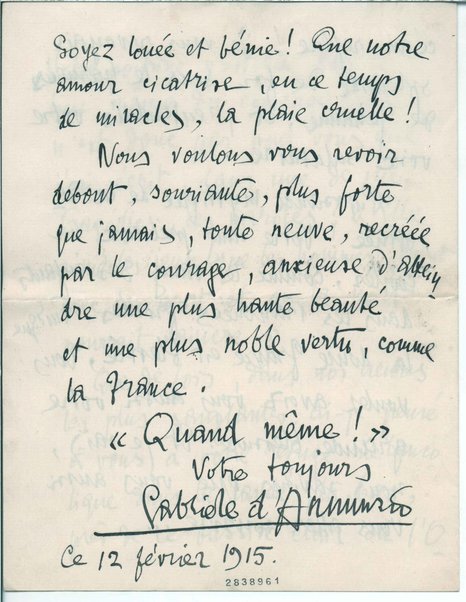 Soyez louée et bénie! Que notre
amour cicatrise, en ce temps
de miracles, la plaie cruelle!
Nous voulons vous revoir
debout, souriante, plus forte
que jamais, toute neuve, recréée
par le courage, anxieuse d'attein
dre une plus haute beauté
et une plus noble vertu, comme
la France.
« Quand même! »
Votre toujours
Gabriele d'Annunzio
Ce 12 février 1915.
2838961